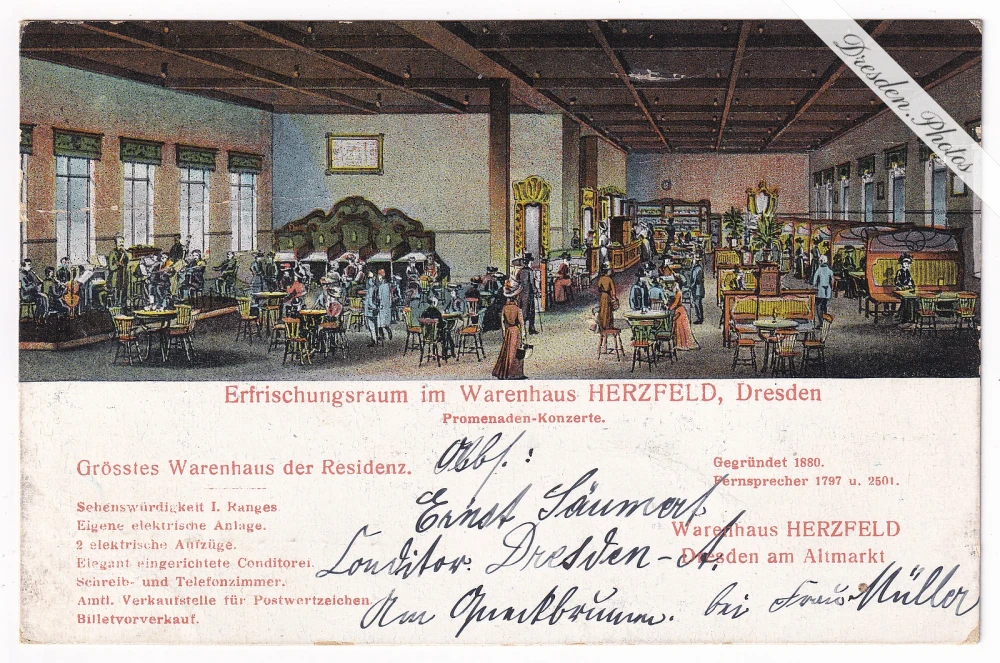 Dresden.Photos
Erfrischungsraum im Warenhaus HERZFELD, Dresden
Promenaden-Konzerte.
Grösstes Warenhaus der Residenz.
Sehenswürdigkeit I. Ranges
Eigene elektrische Anlage.
2 elektrische Aufzüge.
Elegant eingerichtete Conditorei.
Schreib- und Telefonzimmer.
Amtl. Verkaufstelle für Postwertzeichen
Billetvorverkauf.
Gegründet 1880.
Fernsprecher 1797 u. 2501.
Warenhaus HERZFELD
Dresden am Altmarkt
Ernst
Conditor. Dresden-A.
Am Queckbrunnen. bei Frau Müller